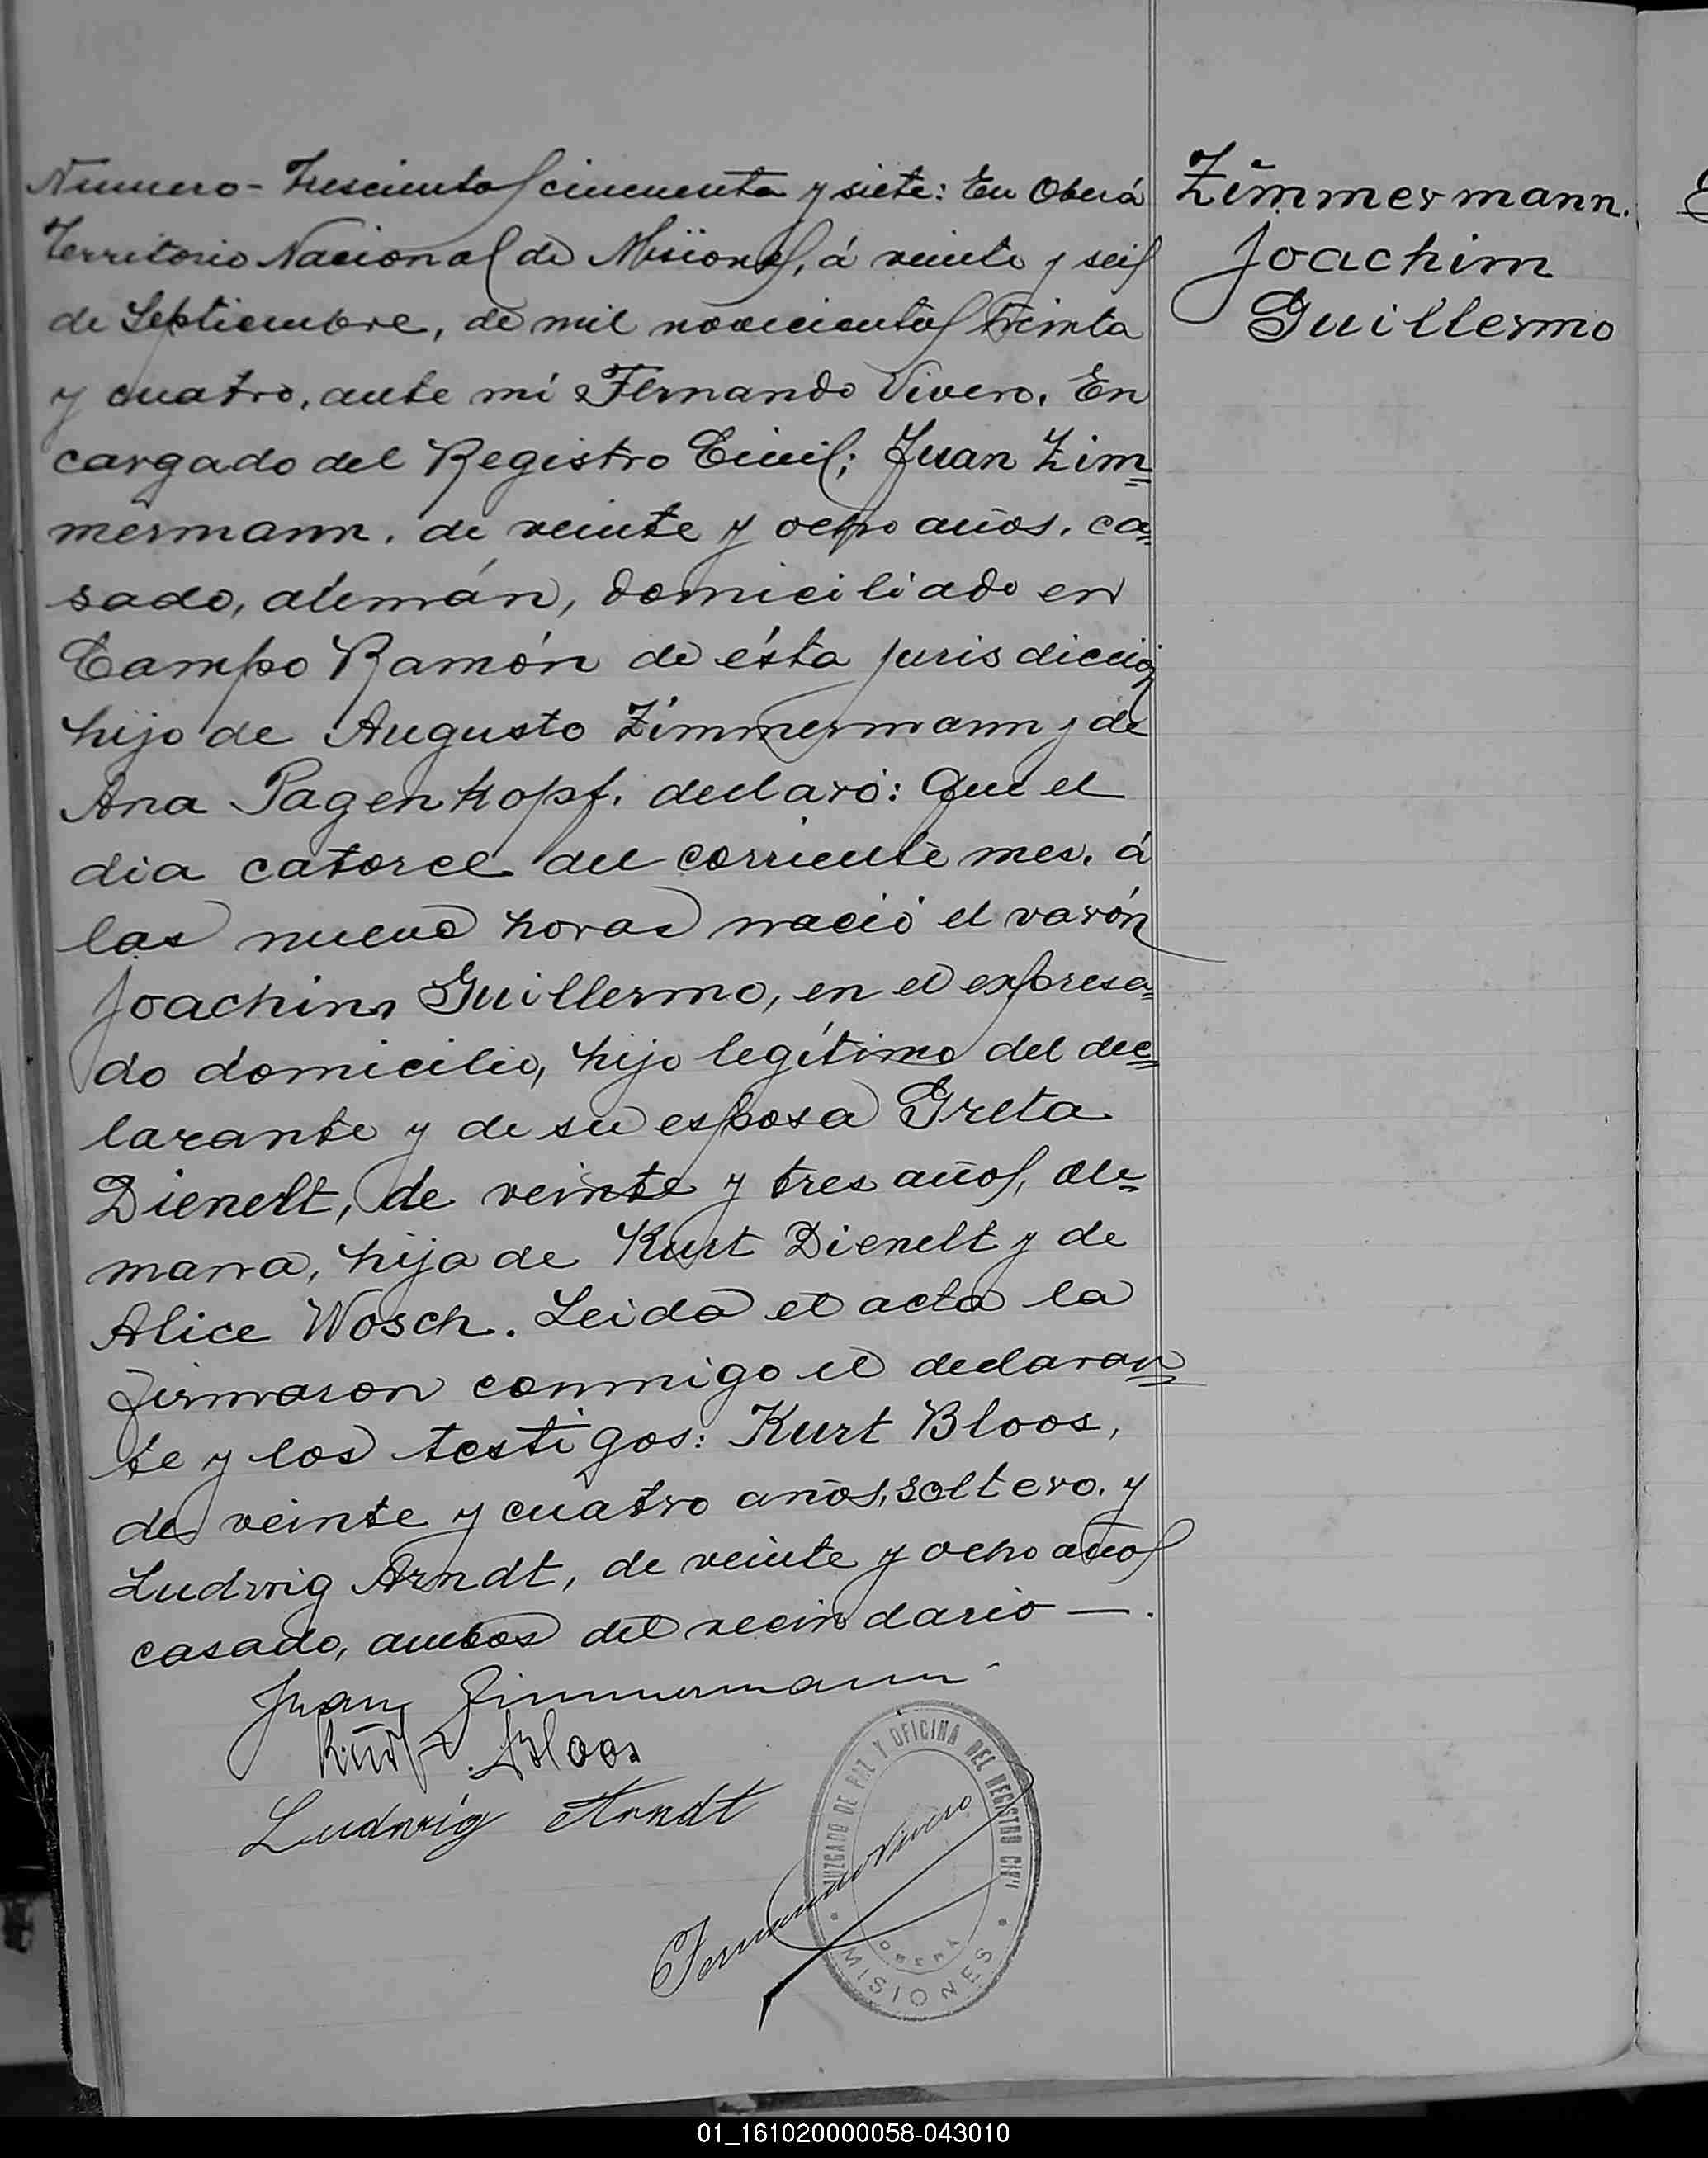 Numero - Trescientos cincuenta y siete: En Oberá
Territorio Nacional de Misiones, á veinte y seis
de Septiembre, de mil novecientos treinta
y cuatro, ante mi Fernando Vivero. En
cargado del Registro Civil; Juan Zim=
mermann. de veinte y ocho años. ca=
sado, alemán, domiciliado en
Campo Ramón de ésta jurisdicción
hijo de Augusto Zimmermann y de
Ana Pagenkopf. declaró: Que el
dia catorce del corriente mes. á
las nueve horas nació el varón
Joachim Guillermo, en el expresa=
do domicilio, hijo legítimo del dec=
larante y de su esposa Greta
Dienelt, de veinte y tres años, ale=
mana, hija de Kurt Dienelt y de
Alice Wosch. Leida el acta la
firmaron conmigo el declaran=
te y los testigos: Kurt Bloos,
de veinte y cuatro años, soltero. y
Ludwig Arndt, de veinte y ocho años
casado, ambos del vecindario —.
Juan Zimmermann
Kurt Bloos
Ludwig Arndt
Fernando Vivero
JUZGADO DE PAZ Y OFICINA DEL REGISTRO CIVIL
OBERÁ
MISIONES
Zimmermann.
Joachim
Guillermo
01_161020000058-043010